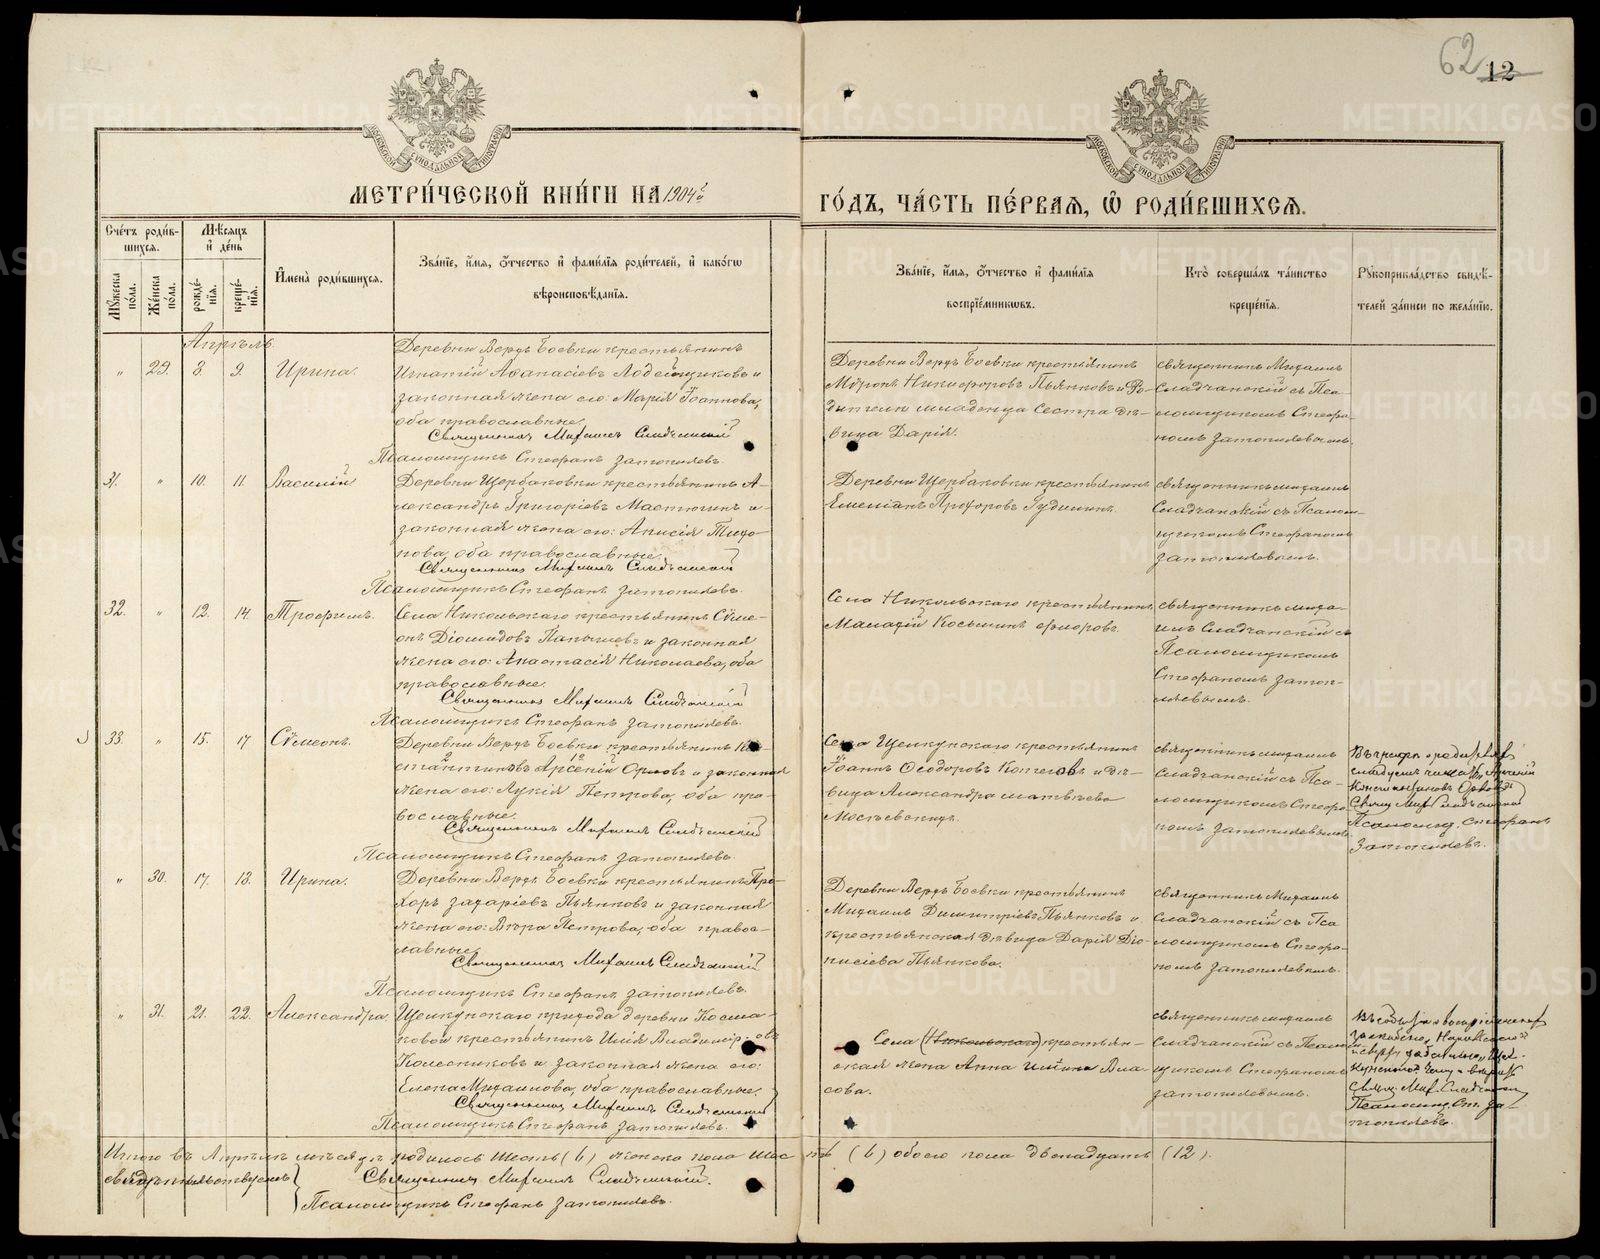 62 12
МОСКОВСКОЙ СѴНОДАЛЬНОЙ ТИПОГРАФІИ
МОСКОВСКОЙ СѴНОДАЛЬНОЙ ТИПОГРАФІИ
МЕТРИ́ЧЕСКОЙ КНИ́ГИ НА 1904 г
ГО́ДЪ, ЧА́СТЬ ПЕ́РВАѦ, Ѡ҆ РОДИ́ВШИХСѦ.
Сче́тъ роди́в-
шихся.
Мѣ́сяцъ
и҆ де́нь
Мꙋ́жеска по́ла.
Же́нска по́ла.
рожде́-
нїѧ.
креще́-
нїѧ.
И҆мена̀ роди́вшихся.
Зва́нїе, и҆́мѧ, ѻ҆́тчество и҆ фами́лїѧ роди́телей, и҆ како́гѡ
вѣроисповѣ́данїѧ.
Зва́нїе, и҆́мѧ, ѻ҆́тчество и҆ фами́лїѧ
воспрїе́мникѡвъ.
Кто̀ соверша́лъ та́инство
креще́нїѧ.
Рꙋкоприкла́дство свидѣ́-
телей за́писи по жела́нїю.
Апрѣль
„ 29. 8. 9. Ирина.
Деревни Верхъ Боевки крестьянинъ
Игнатій Аѳанасіевъ Лодейщиковъ и
законная жена его: Марія Іоаннова,
оба православные.
Священникъ Михаилъ Сладчанскій
Псаломщикъ Стефанъ Затопляевъ.
Деревни Верхъ Боевки крестьянинъ
Миронъ Никифоровъ Пьянковъ и Ро-
дителя младенца сестра дѣ-
вица Дарія.
священникъ Михаилъ
Сладчанскій съ Пса-
ломщикомъ Стефа-
номъ Затопляевымъ.
31. „ 10. 11. Василій
Деревни Щербаковки крестьянинъ А-
лександръ Григоріевъ Мастюгинъ и
законная жена его: Анисія Тихо-
нова, оба православные.
Священникъ Михаилъ Сладчанскій
Псаломщикъ Стефанъ Затопляевъ.
Деревни Щербаковки крестьянинъ
Емеліанъ Прохоровъ Гудининъ.
священникъ михаилъ
Сладчанскій съ Псалом-
щикомъ Стефаномъ
Затопляевымъ.
32. „ 12. 14. Трофимъ.
Села Никольскаго крестьянинъ Сѵме-
онъ Діомидовъ Папышевъ и законная
жена его: Анастасія Николаева, оба
православные.
Священникъ Михаилъ Сладчанскій
Псаломщикъ Стефанъ Затопляевъ.
Села Никольскаго крестьянинъ
Малафій Косьминъ Флоровъ.
священникъ миха-
илъ Сладчанскій съ
Псаломщикомъ
Стефаномъ Затоп-
ляевымъ.
33. „ 15. 17 Сѵмеонъ.
Деревни Верхъ Боевки крестьянинъ Кон-
стантиновъ Арсеній Орловъ и законная
жена его: Лукія Петрова, оба пра-
вославные.
Священникъ Михаилъ Сладчанскій
Псаломщикъ Стефанъ Затопляевъ.
Села Щелкунскаго крестьянинъ
Іоаннъ Ѳеодоровъ Котеговъ и дѣ-
вица Александра матвѣева
священникъ михаилъ
Сладчанскій съ Пса-
ломщикомъ Стефа-
номъ Затопляевымъ.
Въ графѣ о родителяхъ
слѣдуетъ читать Арсеній
Константиновъ Орловъ
Свящ. Мих. Сладчанскій
Псаломщ. Стефанъ
Затопляевъ.
„ 30. 17. 18. Ирина.
Деревни Верхъ Боевки крестьянинъ Про-
хоръ Захаріевъ Пьянковъ и законная
жена его: Вѣра Петрова, оба право-
славные.
Священникъ Михаилъ Сладчанскій
Псаломщикъ Стефанъ Затопляевъ.
Деревни Верхъ Боевки крестьянинъ
Михаилъ Димитріевъ Пьянковъ и
крестьянская дѣвица Дарія Діо-
нисіева Пьянкова.
священникъ Михаилъ
Сладчанскій съ Пса
ломщикомъ Стефа-
номъ Затопляевымъ.
„ 31. 21. 22. Александра.
Щелкунскаго прихода деревни Косма-
ковой крестьянинъ Илія Владиміровъ
Колесниковъ и законная жена его:
Елена Михаилова, оба православные.
Священникъ Михаилъ Сладчанскій
Псаломщикъ Стефанъ Затопляевъ.
Села (Никольскаго) крестьян-
ская жена Анна Илѣина Вла-
сова.
священникъ михаилъ
Сладчанскій съ Псалом-
щикомъ Стефаномъ
Затопляевымъ.
Свящ. Мих. Сладчанскій
Псаломщ. Ст. За-
топляевъ.
Итого въ Апрѣлѣ мѣсяцѣ родилось шесть (6) женска пола шесть (6) обоего пола двѣнадцать (12).
свидѣтельствуемъ Священникъ Михаилъ Сладчанскій.
Псаломщикъ Стефанъ Затопляевъ.
METRIKI.GASO-URAL.RU